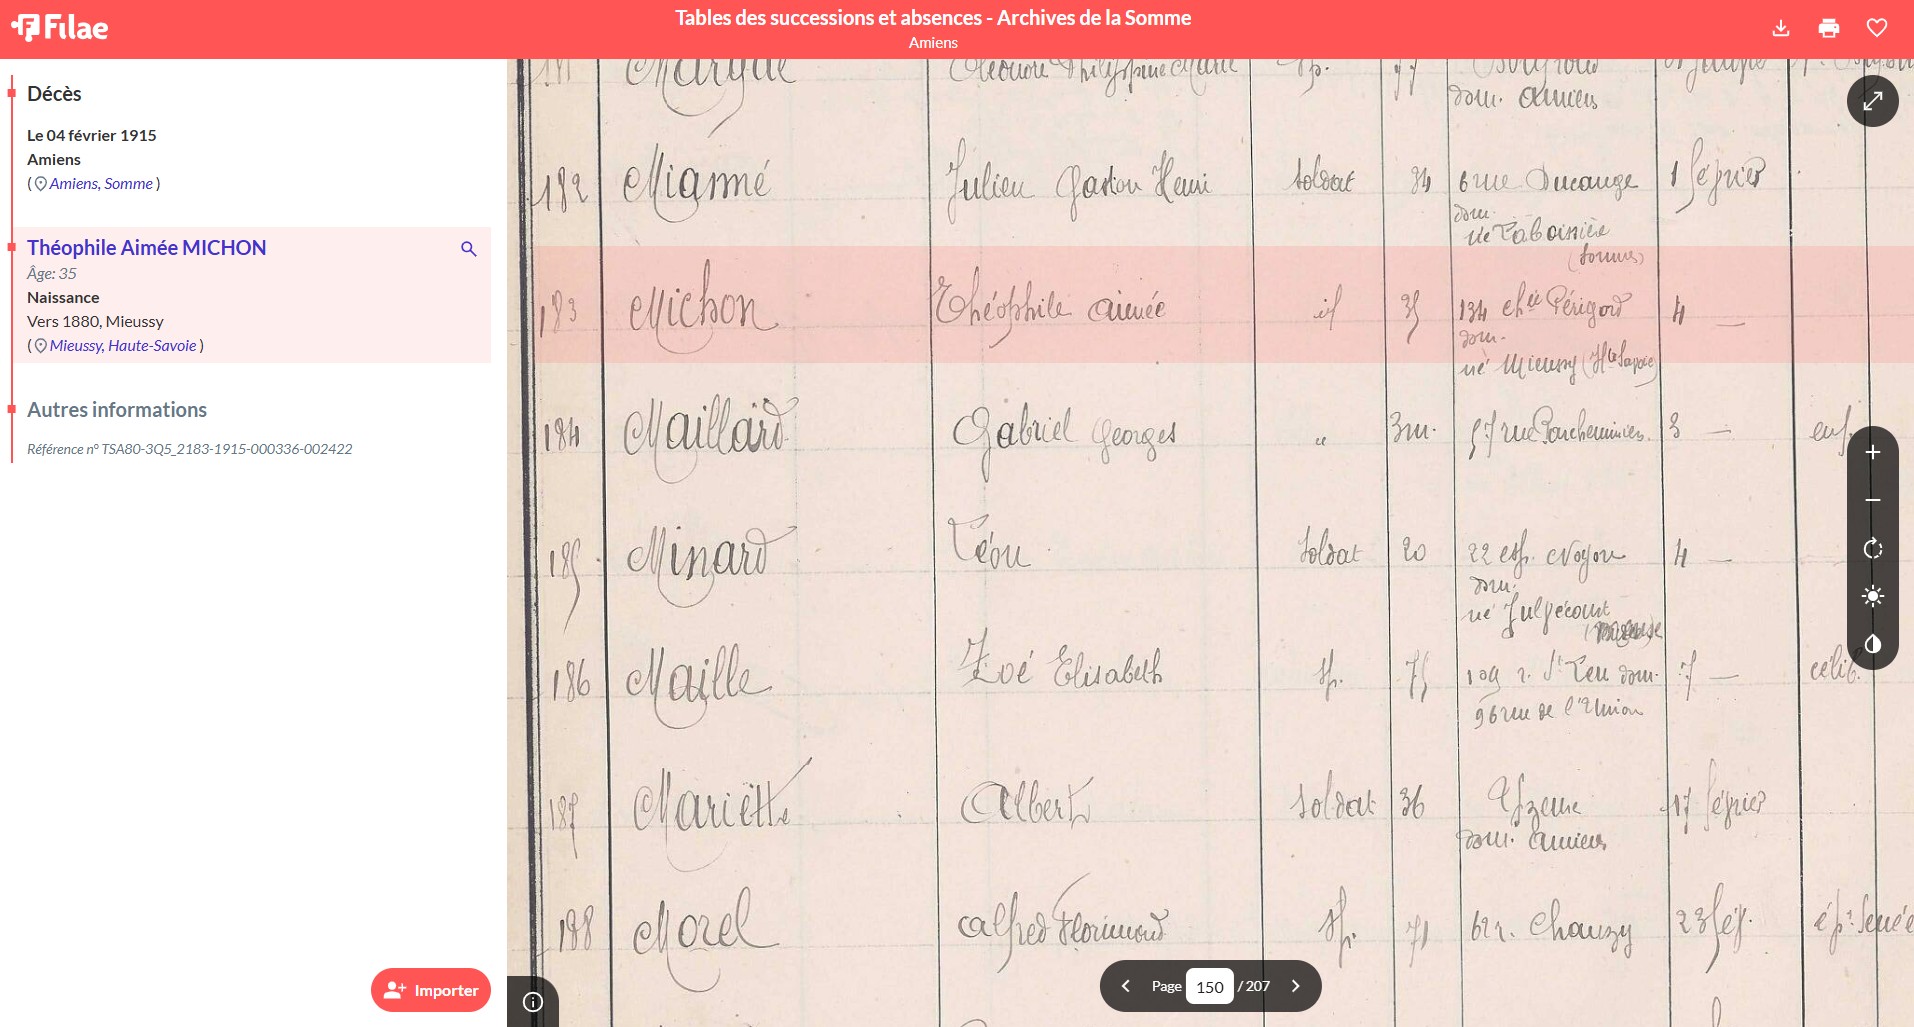 Filae
Tables des successions et absences - Archives de la Somme
Amiens
Décès
Le 04 février 1915
Amiens
( Amiens, Somme )
Théophile Aimée MICHON
Âge: 35
Naissance
Vers 1880, Mieussy
( Mieussy, Haute-Savoie )
Autres informations
Référence n° TSA80-3Q5_2183-1915-000336-002422
Importer
dom. Amiens
182 Miammé Julien Gaston Henri soldat 34 6 rue Ducange 1 février
dom.
né
(Somme)
183 Michon Théophile aimée id 35 134 ch Périgord 4 —
dom.
né Mieussy (Hte Savoie)
184 Maillard Gabriel Georges " 3m. 57 rue Parcheminiers. 3 — enf.
185 Minard Léon soldat 20 22 esp. Noyon 4 —
dom.
né Julvécourt
(Meuse
186 Maille Zoé Elisabeth sp. 75 109 r. St Leu dom. 7 — célib.
96 rue de l'Union
187 Mariette Albert soldat 36 17 février
dom. Amiens
188 Morel Alfred Florimond sp. 71 62 r. Chauzy 23 fév.
Page 150 / 207